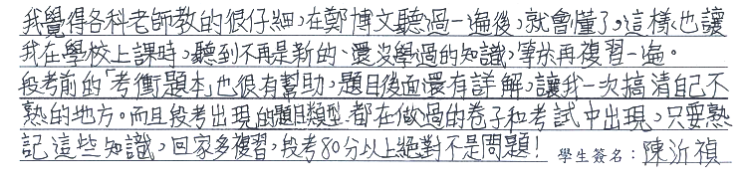 我覺得各科老師教的很仔細,在鄭博文聽過一遍後,就會懂了,這樣也讓
我在學校上課時,聽到不再是新的、還沒學過的知識,等於再複習一遍。
段考前的「考衝題本」也很有幫助,題目後面還有詳解,讓我一次搞清自己不
熟的地方。而且段考出現的題目類型都在做過的卷子和考試中出現,只要熟
記這些知識,回家多複習,段考80分以上絕對不是問題! 學生簽名:陳沂禎